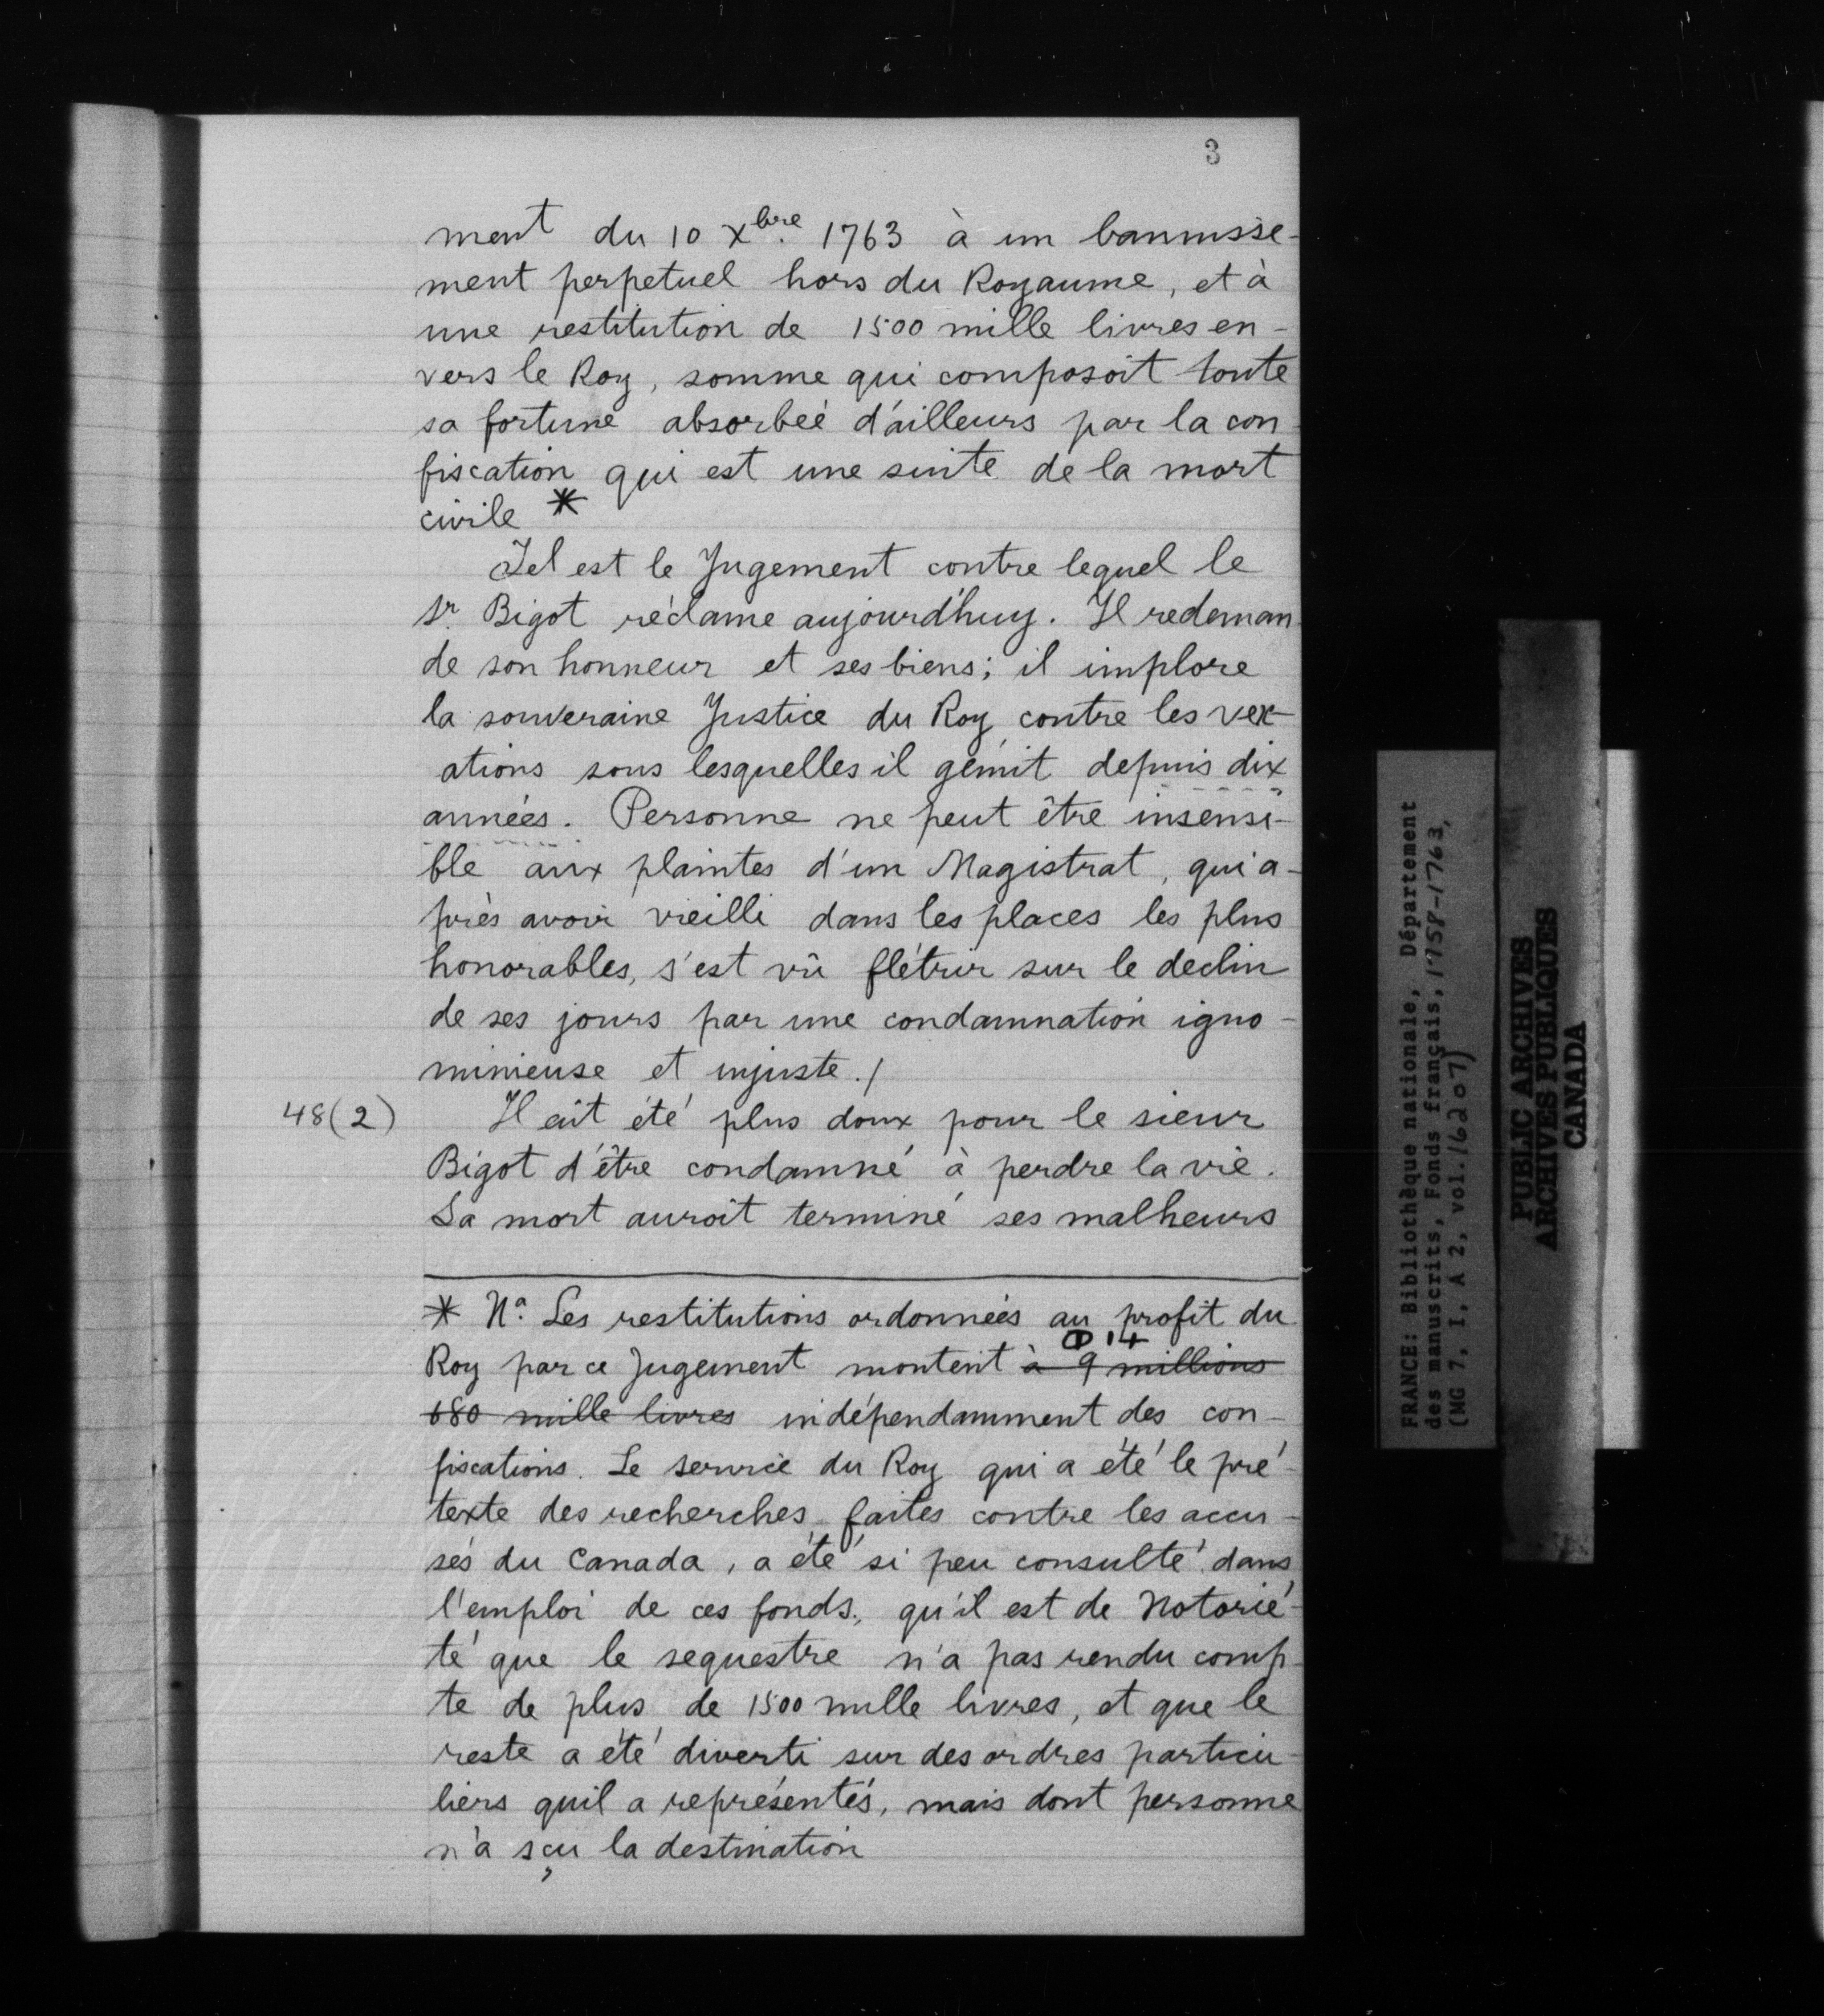 3
ment du 10 Xbre. 1763 à un bannisse-
ment perpetuel hors du Royaume, et à
une restitution de 1500 mille livres en-
vers le Roy, somme qui composoit toute
sa fortune absorbeé d'ailleurs par la con
fiscation qui est une suite de la mort
civile *
Tel est le Jugement contre lequel le
Sr. Bigot réclame aujourd'huy. Il redeman
de son honneur et ses biens; il implore
la souveraine Justice du Roy contre les vex-
ations sous lesquelles il gémit depuis dix
années. Personne ne peut être insensi-
ble aux plaintes d'un Magistrat, qui a-
près avoir vieilli dans les places les plus
honorables, s'est vû flétrir sur le declin
de ses jours par une condamnation igno-
minieuse et injuste./
48(2) Il eût été plus doux pour le sieur
Bigot d'être condamné à perdre la vie.
Sa mort auroit terminé ses malheurs
* Na. Les restitutions ordonnées au profit du
14
Roy par ce Jugement montent à 9 millions
680 mille livres indépendamment des con-
fiscations. Le service du Roy qui a été le pré-
texte des recherches faites contre les accu-
sés du Canada, a été si peu consulté dans
l'emploi de ces fonds, qu'il est de Notorié-
té que le sequestre n'a pas rendu comp-
te de plus de 1500 mille livres, et que le
reste a été diverti sur des ordres particu-
liers quil a représentés, mais dont personne
n'a sçu la destination
FRANCE: Bibliothèque nationale, Département
des manuscrits, Fonds français, 1758-1763,
(MG 7, I, A 2, vol. 16207)
PUBLIC ARCHIVES
ARCHIVES PUBLIQUES
CANADA